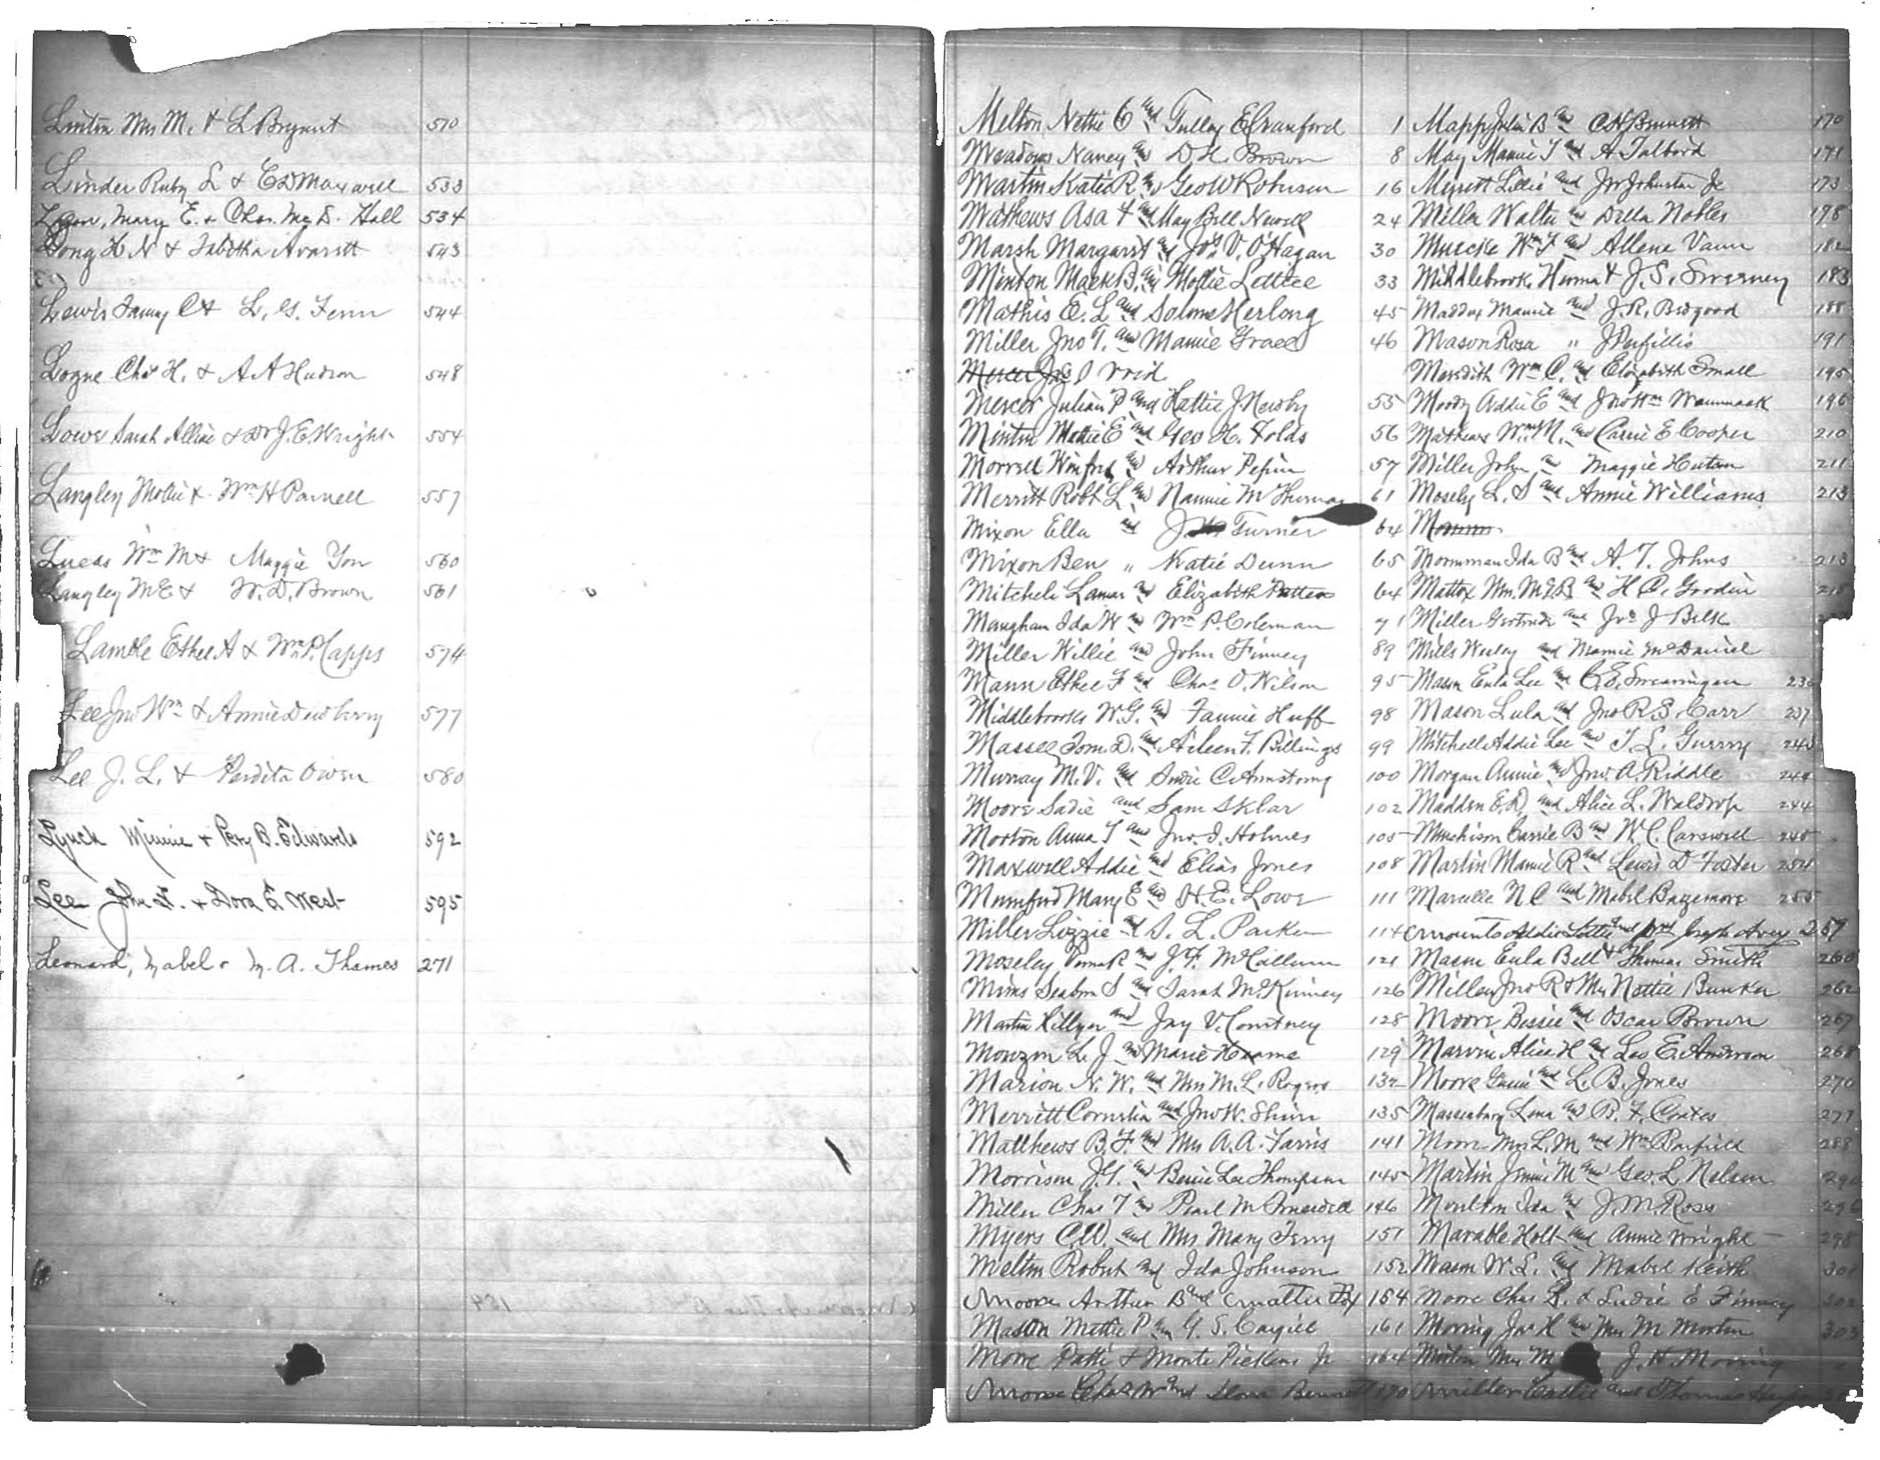 Linton Mrs M. & L Bryant 510
Linder Ruby L & Ed Maxwell 533
Logan, Mary E. & Chas. McD. Hall 534
Long H N & Tabitha Averett 543
Lewis Fanny C & L. G. Fenn 544
Logue Chas H. & A A Hudson 548
Lowe Sarah Alline & Dr J. E. Wright 554
Langley Mollie & Wm H Parnell 557
Lucas Wm M & Maggie Yon 560
Langley M E & W. D. Brown 561
Lamble Ethel A & Wm P. Capps 574
Lee Jno Wm & Annie Dewberry 577
Lee J. L. & Perdita Owen 580
Lynch Minnie & Percy B. Edwards 592
Lee John F. & Dora E. West 595
Leonard, Mabel & M. A. Thames 271
Melton Nettie C and Tulley E Cranford 1
Meadows Nancy and D. H. Brown 8
Martin Katie R and Geo W Robinson 16
Mathews Asa F and May Bell Newell 24
Marsh Margaret and Jno V. O'Hagan 30
Minton Mack B. and Mollie Lettice 33
Mathis E. L and Salome Herlong 45
Miller Jno T. and Mamie Grace 46
Mercer Void
Mercer Julian P and Hattie J Newby 55
Minton Mattie E and Geo H. Folds 56
Morrell Winfred and Arthur Pepin 57
Merritt Robt L. and Nannie M 61
Mixon Ella and J Turner 64
Mixon Ben " Katie Dunn 65
Mitchell Lamar and Elizabeth Patters 64
Maughan Ida W and Wm P. Coleman 71
Miller Willie and John Finney 89
Mann Ethel F and Chas O. Wilson 95
Middlebrooks W. G. and Fannie Huff 98
Massee Tom D. and Aileen F. Billings 99
Murray M. V. and Susie C. Armstrong 100
Moore Sadie and Sam Sklar 102
Morton Anna T and Jno. I. Holmes 105
Maxwell Addie and Elias Jones 108
Mumford Mary E and H. E. Lowe 111
Miller Lizzie and S. L. Parker 114
Moseley R and J. F. McCallum 121
Mims Seabon S and Sarah McKinney 126
Martin Hillyer and Jay V. Courtney 128
Mouzon L. J and Marie 129
Marion N. W. and Mrs M. L. Rogers 132
Merritt Cornelia and Jno W. Shinn 135
Matthews B. F. and Mrs A. A. Farris 141
Morrison J. T. and Bessie Lee Thompson 145
Miller Chas T and Pearl M 146
Myers C. W. and Mrs Mary Ferry 151
Melton Robert and Ida Johnson 152
Moore Arthur B and Mattie Fox 154
Mason Mattie P and G. S. Cargill 161
Moore Patti & Monte Pickens Jr 164
Moore Chas W and Dora Bennett 170
Mapp Julia B and C H Bennett 170
May Mamie T and A Talbord 171
Merritt Lillie and Jno Johnston Jr 173
Miller Walter and Della Nobles 178
Muecke Wm F and Allena Vann 182
Middlebrooks Herma & J. S. Sweeney 183
Maddux Mamie and J. R. Bedgood 188
Mason Rosa " J 191
Meredith Wm C. and Elizabeth Small 195
Moody Addie E and Jno Wammack 196
Mathews Wm M. and Carrie E Cooper 210
Miller John and Maggie Hutson 211
Mosely L. S and Annie Williams 213
Momman Ida B and A. T. Johns 213
Mattox Mrs. M. F. B. and H. C. Goodin 215
Miller Gertrude and Jno J Belk
Mills Wesley and Mamie McDaniel
Mason Eula Lee and C. E. Swearingen 236
Mason Lula and Jno R. S. Carr 237
Mitchell Addie Lee and T. L. Gurry 240
Morgan Annie and Jno. A. Riddle 241
Madden E. D. and Alice L. Waldrop 244
Murchison Carrie B and W. C. Carswell 245
Martin Mamie R and Lewis D Foster 254
Marcelle N. C and Mabel Bazemore 255
Mounts Addie Lottie and Wm Joseph Avery 257
Mason Eula Bell & Thomas Smith 260
Miller Jno R & Mrs Nettie Bunker 262
Moore, Bessie and Oscar Brown 267
Marvin Alice H and Leo E. Anderson 268
Moore Gussie and L. B. Jones 270
Massenburg Lena and B. F. Coates 277
Moore Mrs L. M. and Wm Barfield 288
Martin Jimmie M and Geo. L Nelson 290
Moulton Ida and J. M. Ross 296
Marable Holt and Annie Wright 298
Mason W. L. and Mabel Keith 301
Moore Chas L. & Sudie E Finney 302
Mooring Jas H and Mrs M Morton 303
Morton Mrs M J. H. Mooring
Miller Callie and Thomas